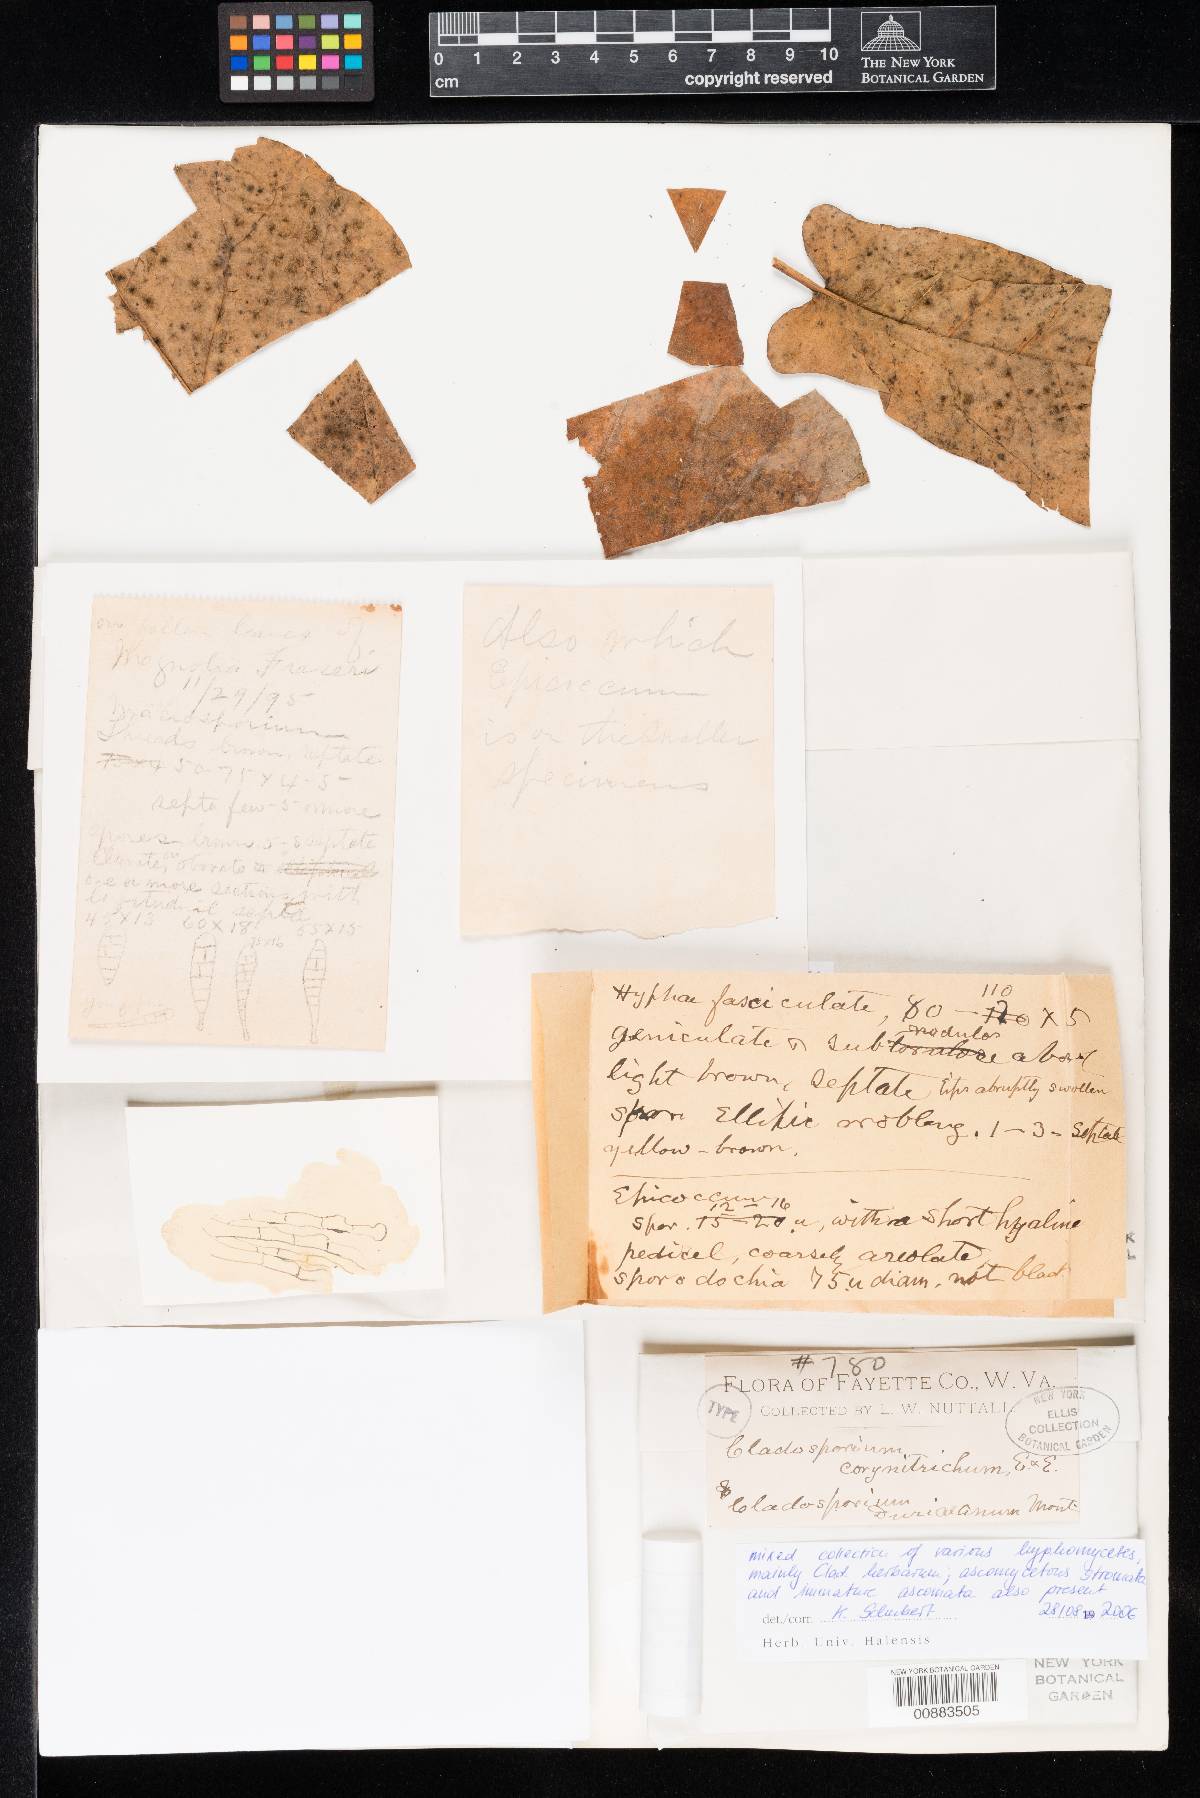 0 1 2 3 4 5 6 7 8 9 10
cm
copyright reserved
THE NEW YORK
BOTANICAL GARDEN
on fallen leaves of
Magnolia Fraseri
11/29/95
Macrosporium
threads brown, septate
50-75 x 4-5
septa few-5 or more
spores brown 5-8 septate
Clavate, or obovate
one or more sections with
longitudinal septa
45x13 60x18 65x15
75x16
Also which
Epicoccum
is on the smaller
specimens
Hyphae fasciculate, 80-110 x 5
geniculate or subnodulose above
light brown, septate tips abruptly swollen
spore Elliptic or oblong. 1-3-septate
yellow-brown.
Epicoccum
spor. 12-16 u, with a short hyaline
pedicel, coarsely areolate
sporodochia 75 u diam. not black
#780
FLORA OF FAYETTE CO., W. VA.
COLLECTED BY L. W. NUTTALL
TYPE
NEW YORK
ELLIS
COLLECTION
BOTANICAL GARDEN
Cladosporium
corynitrichum, E. & E.
& Cladosporium
Duriaeanum Mont
mixed collection of various hyphomycetes,
mainly Clad. herbarum; ascomycetous stromata
and immature ascomata also present
det./corr. K. Schubert 28/08 2006
Herb. Univ. Halensis
NEW YORK
BOTANICAL
GARDEN
NEW YORK BOTANICAL GARDEN
00883505